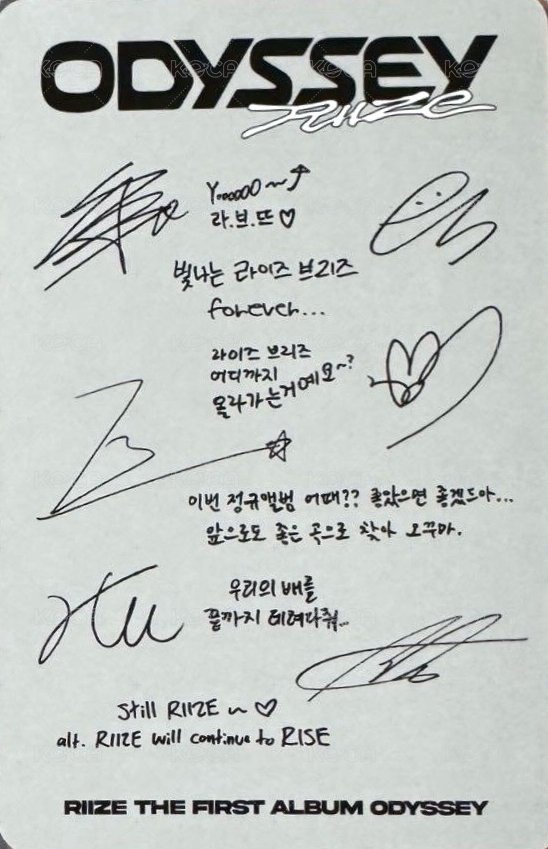 ODYSSEY
RIIZE
Yooooo~
라.브.뜨♡
빛나는 라이즈 브리즈
forever...
라이즈 브리즈
어디까지
올라가는거예요~?
이번 정규앨범 어때?? 좋았으면 좋겠드아...
앞으로도 좋은 곡으로 찾아 오꾸마.
우리의 배를
끝까지 데려다줘...
Still RIIZE ~ ♡
alt. RIIZE will continue to RISE
RIIZE THE FIRST ALBUM ODYSSEY